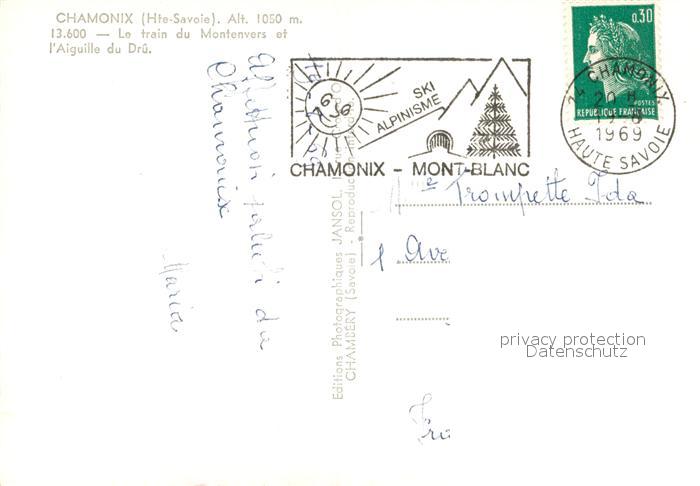 CHAMONIX (Hte-Savoie). Alt. 1050 m.
13.600 — Le train du Montenvers et
l'Aiguille du Drû.
Affettuosi saluti da
Chamonix
Maria
SKI
ALPINISME
CHAMONIX - MONT-BLANC
0,30
POSTES
REPUBLIQUE FRANÇAISE
74 CHAMONIX
20 H
1969
HAUTE SAVOIE
Editions Photographiques JANSOL,
CHAMBÉRY (Savoie) - Reproduction
Mme Trompette Ida
1 Ave
Fra
privacy protection
Datenschutz